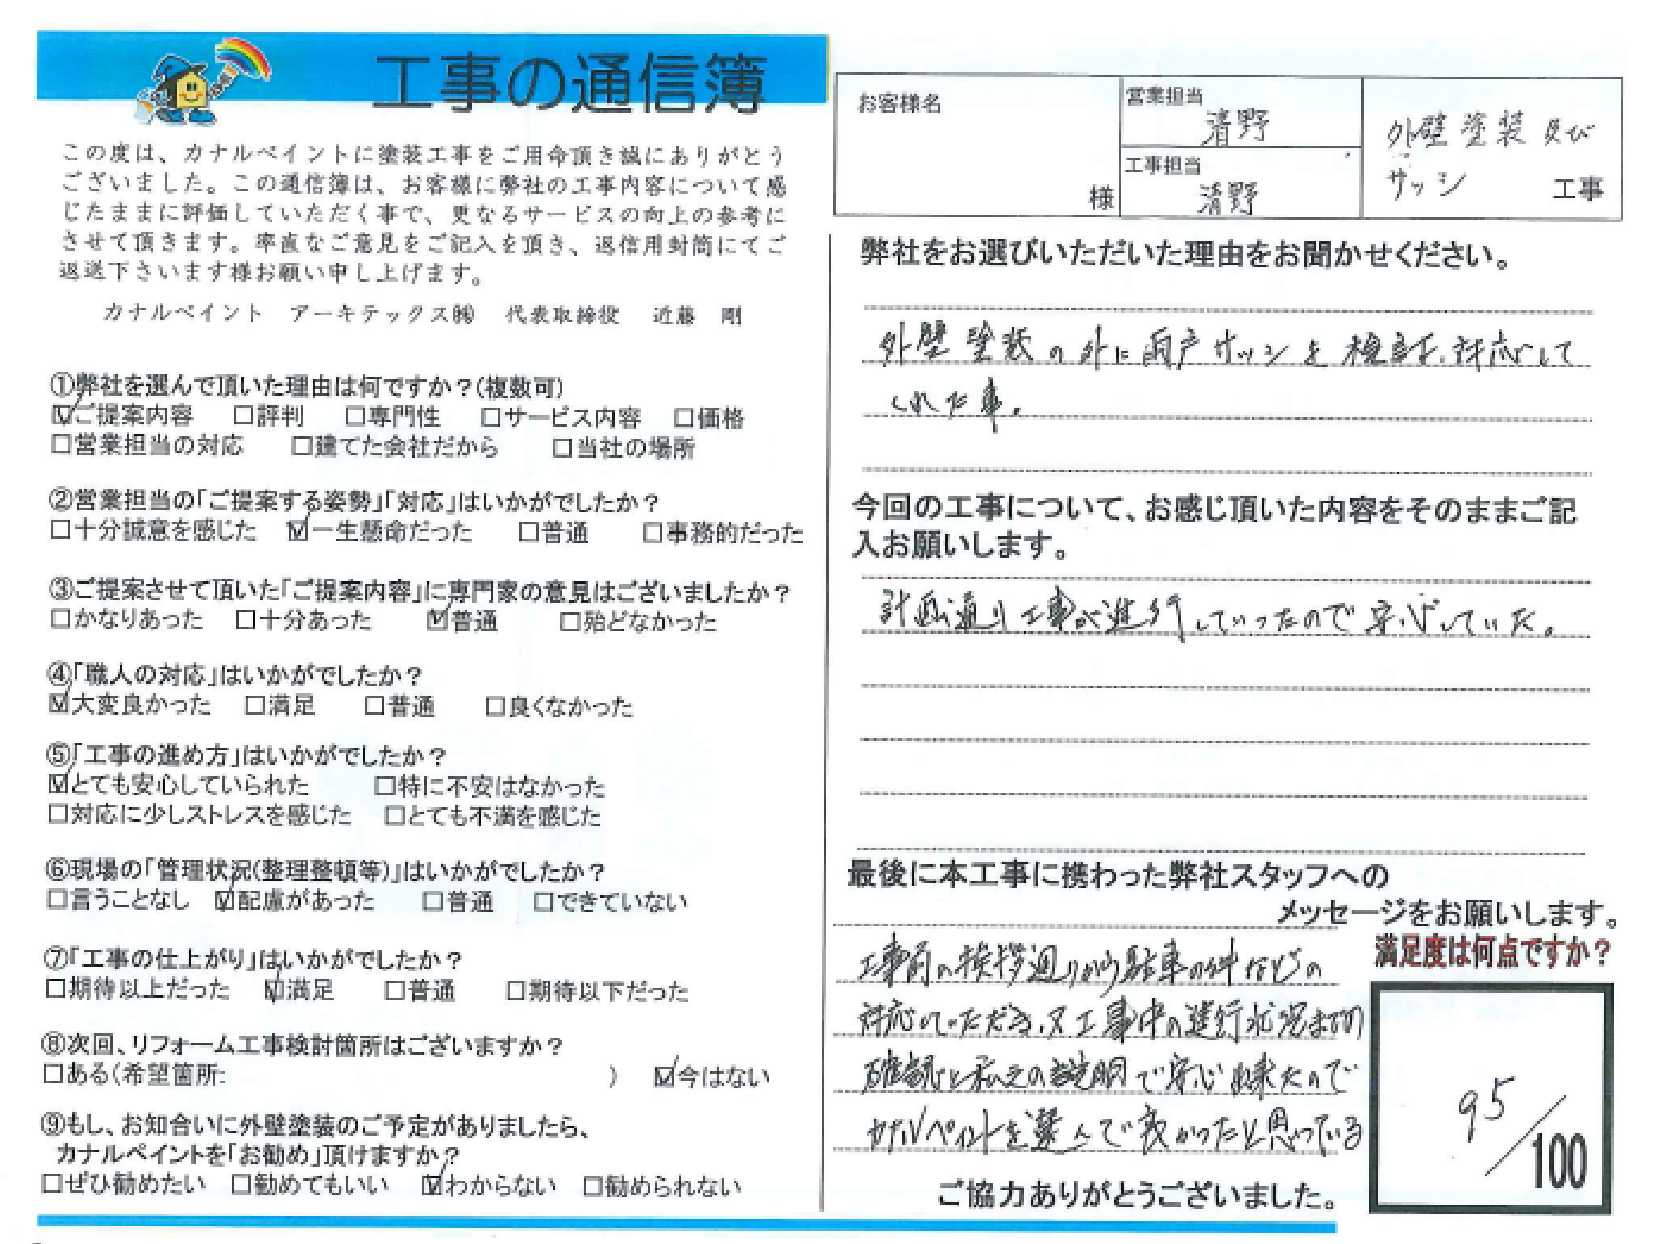 工事の通信簿
この度は、カナルペイントに塗装工事をご用命頂き誠にありがとう
ございました。この通信簿は、お客様に弊社の工事内容について感
じたままに評価していただく事で、更なるサービスの向上の参考に
させて頂きます。率直なご意見をご記入を頂き、返信用封筒にてご
返送下さいます様お願い申し上げます。
カナルペイント アーキテックス㈱ 代表取締役 近藤 剛
①弊社を選んで頂いた理由は何ですか？(複数可)
☑ご提案内容 □評判 □専門性 □サービス内容 □価格
□営業担当の対応 □建てた会社だから □当社の場所
②営業担当の｢ご提案する姿勢｣｢対応｣はいかがでしたか？
□十分誠意を感じた ☑一生懸命だった □普通 □事務的だった
③ご提案させて頂いた｢ご提案内容｣に専門家の意見はございましたか？
□かなりあった □十分あった ☑普通 □殆どなかった
④｢職人の対応｣はいかがでしたか？
☑大変良かった □満足 □普通 □良くなかった
⑤｢工事の進め方｣はいかがでしたか？
☑とても安心していられた □特に不安はなかった
□対応に少しストレスを感じた □とても不満を感じた
⑥現場の｢管理状況(整理整頓等)｣はいかがでしたか？
□言うことなし ☑配慮があった □普通 □できていない
⑦｢工事の仕上がり｣はいかがでしたか？
□期待以上だった ☑満足 □普通 □期待以下だった
⑧次回、リフォーム工事検討箇所はございますか？
□ある(希望箇所: ) ☑今はない
⑨もし、お知合いに外壁塗装のご予定がありましたら、
カナルペイントを｢お勧め｣頂けますか？
□ぜひ勧めたい □勧めてもいい ☑わからない □勧められない
お客様名
様
営業担当
清野
工事担当
清野
外壁塗装及び
サッシ 工事
弊社をお選びいただいた理由をお聞かせください。
外壁塗装の外に雨戸サッシを検討、対応して
くれた事。
今回の工事について、お感じ頂いた内容をそのままご記
入お願いします。
計画通り工事が進行していったので安心していた。
最後に本工事に携わった弊社スタッフへの
メッセージをお願いします。
工事前の挨拶廻りから駐車の件などの
対応していただき、又工事中の進行状況までの
確認と私への説明で安心出来たので
カナルペイントを選んで良かったと思っている
満足度は何点ですか？
95/100
ご協力ありがとうございました。